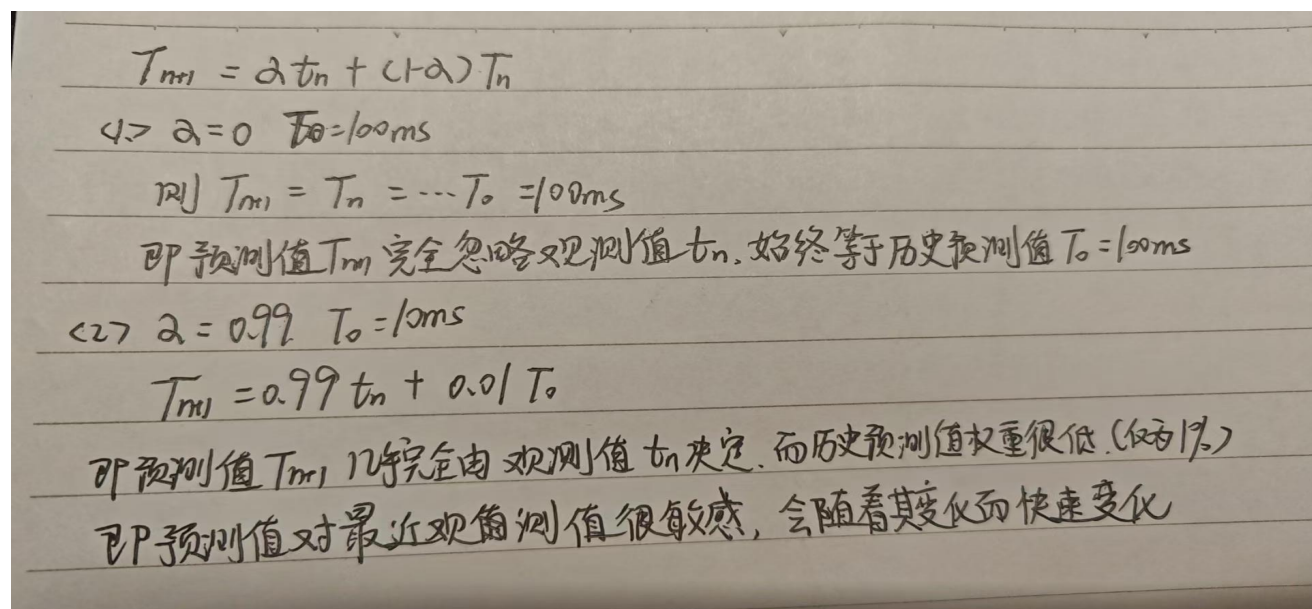 Tn+1 = αtn + (1-α)Tn
<1> α=0 T0=100ms
则 Tn+1 = Tn = ···T0 =100ms
即预测值Tn+1完全忽略观测值tn,始终等于历史预测值T0=100ms
<2> α=0.99 T0=10ms
Tn+1 =0.99tn + 0.01T0
即预测值Tn+1几乎完全由观测值tn决定,而历史预测值权重很低.(仅为1%)
即预测值对最近观测值很敏感,会随着其变化而快速变化